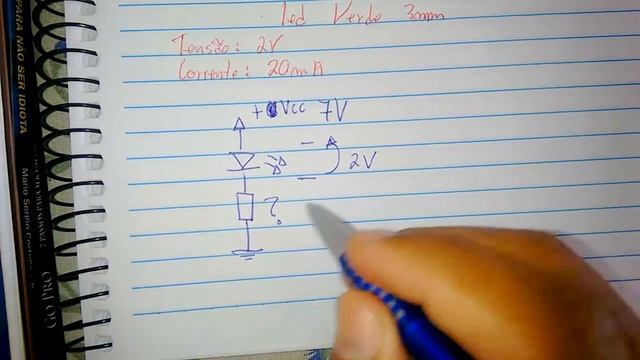 led Verde 3mm
Tensão: 2V
Corrente: 20mA
+ Vcc 7V
2V
?
PARA NÃO SER IDIOTA
Mario Sergio
GO PRO